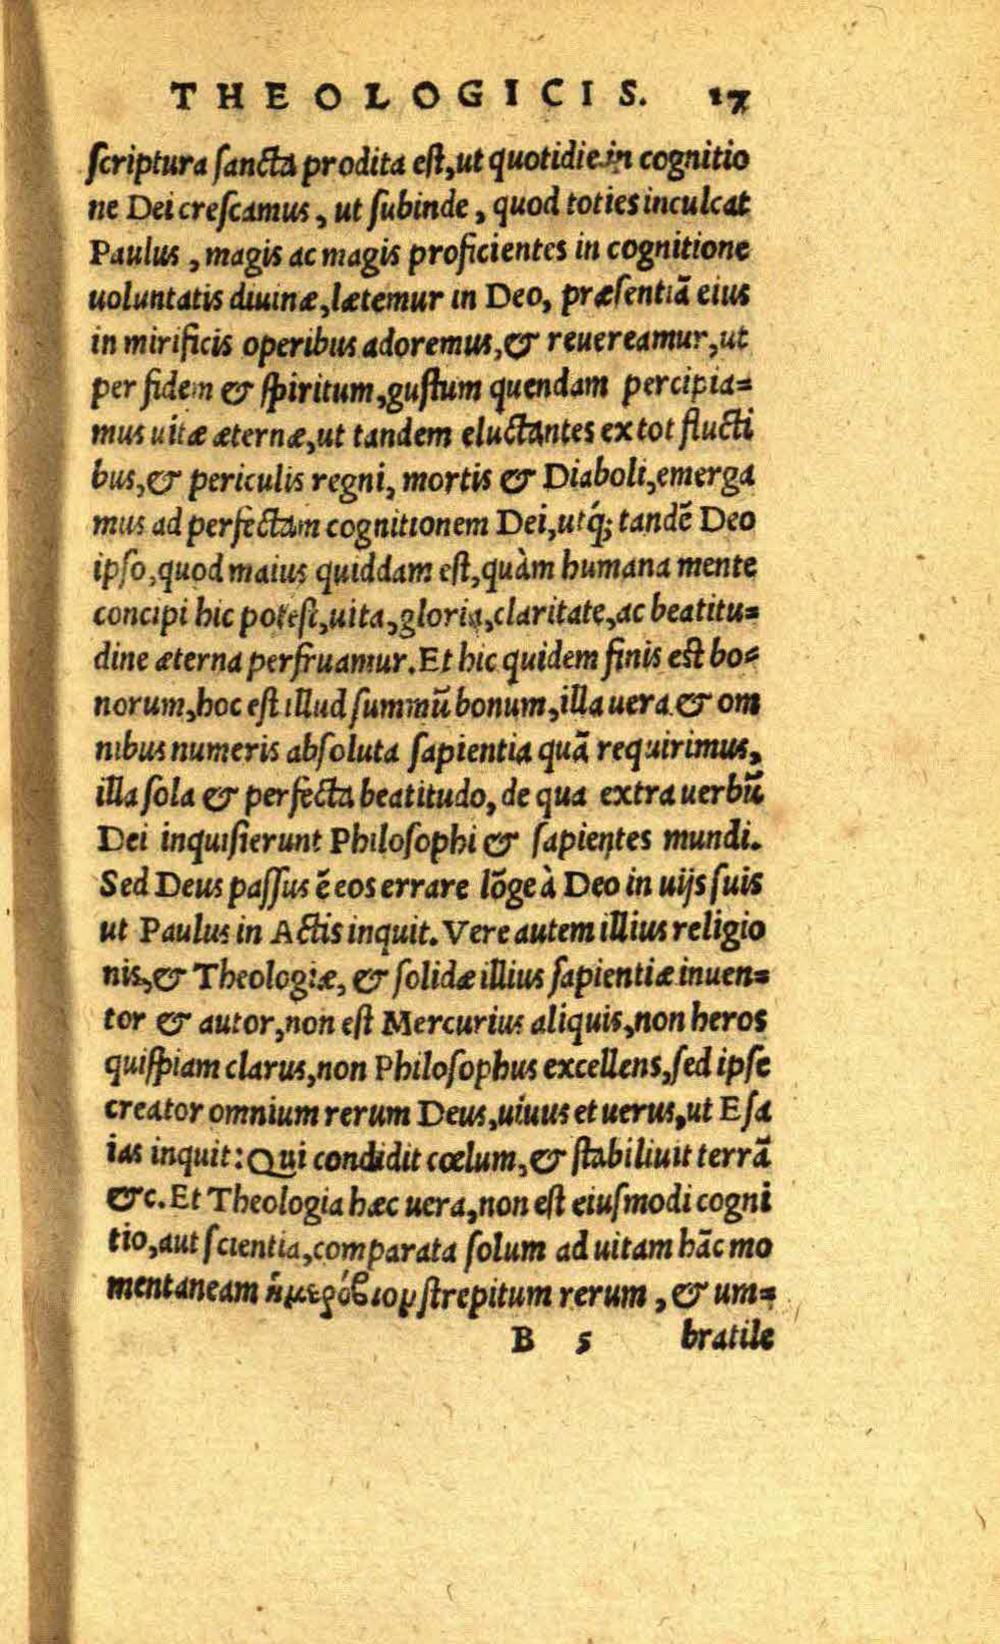 THEOLOGICIS. 17
scriptura sancta prodita est, ut quotidie in cognitio
ne Dei crescamus, ut subinde, quod toties inculcat
Paulus, magis ac magis proficientes in cognitione
uoluntatis diuinæ, lætemur in Deo, præsentiā eius
in mirificis operibus adoremus, & reuereamur, ut
per fidem & spiritum, gustum quendam percipia=
mus uitæ æternæ, ut tandem eluctantes ex tot flucti
bus, & periculis regni, mortis & Diaboli, emerga
mus ad perfectam cognitionem Dei, utq́; tandē Deo
ipso, quod maius quiddam est, quàm humana mente
concipi hic potest, uita, gloria, claritate, ac beatitu=
dine æterna perfruamur. Et hic quidem finis est bo=
norum, hoc est illud summū bonum, illa uera & om
nibus numeris absoluta sapientia quā requirimus,
illa sola & perfecta beatitudo, de qua extra uerbū
Dei inquisierunt Philosophi & sapientes mundi.
Sed Deus passus ē eos errare lōge à Deo in uijs suis
ut Paulus in Actis inquit. Vere autem illius religio
nis, & Theologiæ, & solidæ illius sapientiæ inuen=
tor & autor, non est Mercurius aliquis, non heros
quispiam clarus, non Philosophus excellens, sed ipse
creator omnium rerum Deus, uiuus et uerus, ut Esa
ias inquit: Qui condidit cœlum, & stabiliuit terrā
&c. Et Theologia hæc uera, non est eiusmodi cogni
tio, aut scientia, comparata solum ad uitam hāc mo
mentaneam ἡμερόβιον strepitum rerum, & um=
B 5 bratile